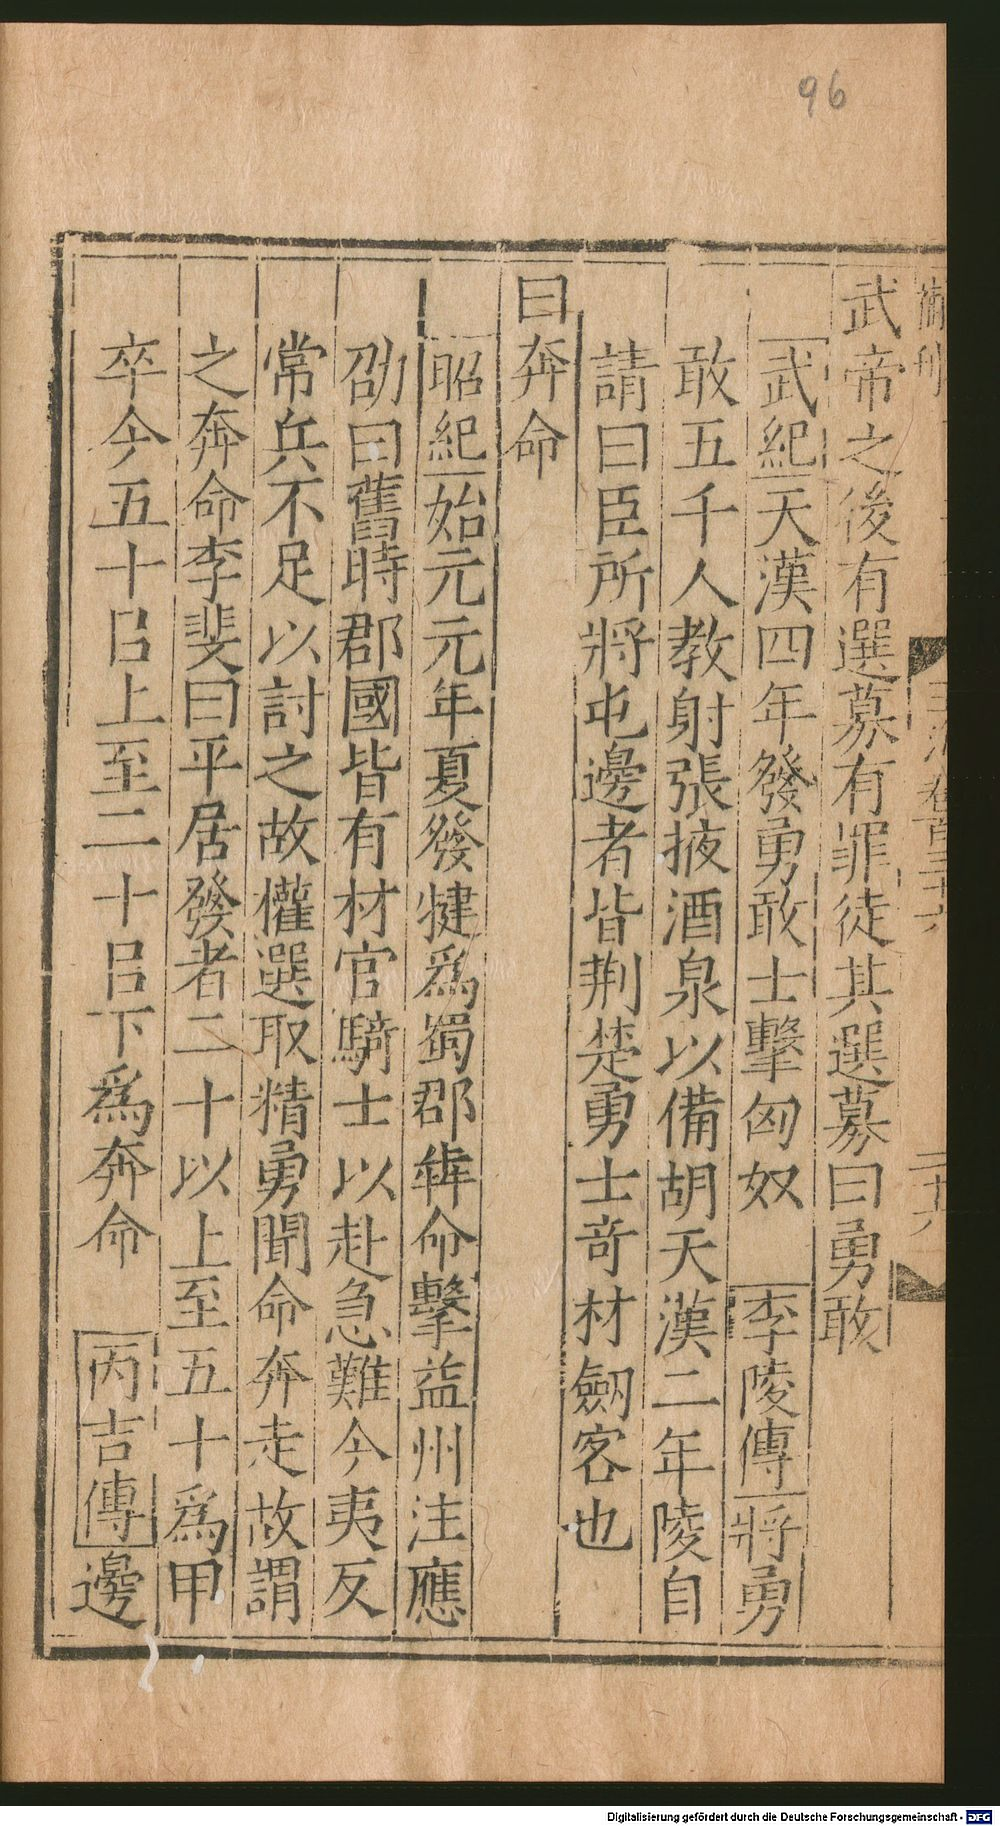 96
武帝之後有選募有罪徒其選募曰勇敢
武紀天漢四年發勇敢士擊匈奴 李陵傳將勇
敢五千人教射張掖酒泉以備胡天漢二年陵自
請曰臣所將屯邊者皆荆楚勇士竒材劒客也
曰奔命
昭紀始元元年夏發犍爲蜀郡犇命擊益州注應
劭曰舊時郡國皆有材官騎士以赴急難今夷反
常兵不足以討之故權選取精勇聞命奔走故謂
之奔命李斐曰平居發者二十以上至五十爲甲
卒今五十㠯上至二十㠯下爲奔命 丙吉傳邊
Digitalisierung gefördert durch die Deutsche Forschungsgemeinschaft - DFG